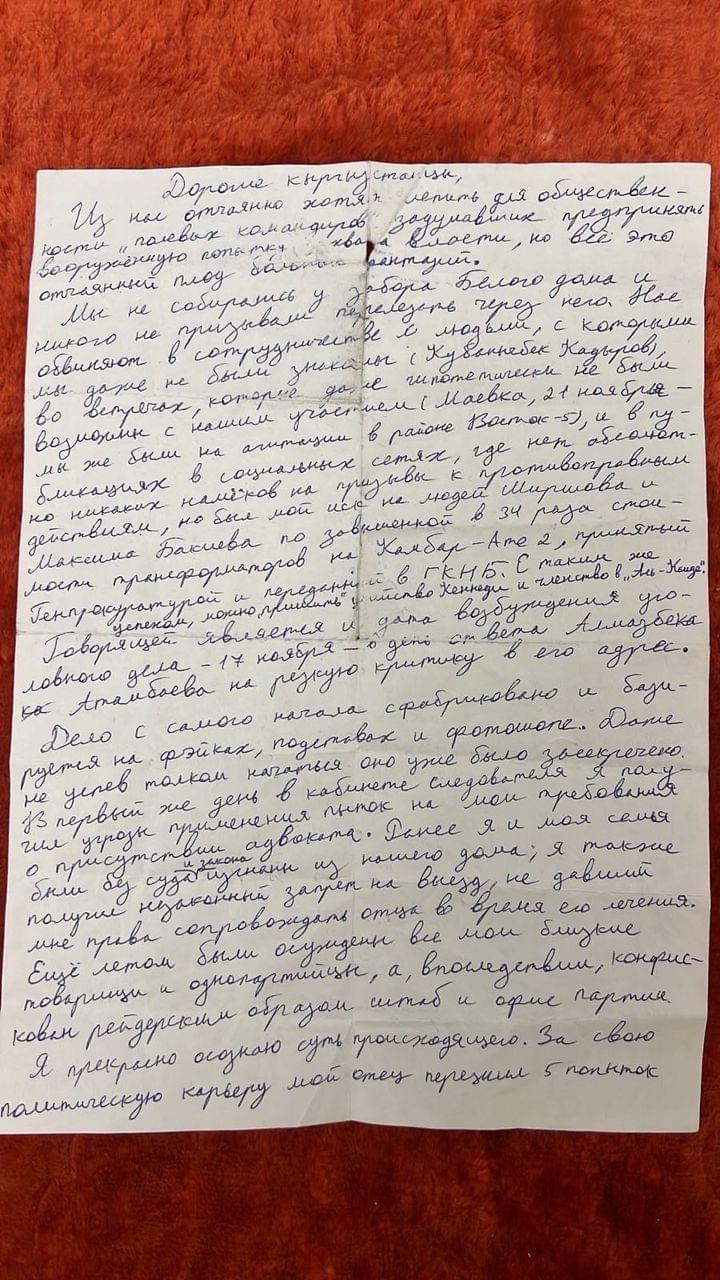 Дорогие кыргызстанцы,
Из нас отчаянно хотят слепить для обществен-
ности "полевых командиров" задумавших предпринять
вооружённую попытку захвата власти, но всё это
отчаянный плод больных фантазий.
Мы не собирались у забора Белого дома и
никого не призывали перелезать через него. Нас
обвиняют в сотрудничестве с людьми, с которыми
мы даже не были знакомы (Кубанычбек Кадыров),
во встречах, которые даже гипотетически не были
возможны с нашим участием (Маевка, 21 ноября -
мы же были на агитации в районе Восток-5), и в пу-
бликациях в социальных сетях, где нет абсолют-
но никаких намёков на призывы к противоправным
действиям, но был мой иск на людей Ширшова и
Максима Бакиева по завышенной в 34 раза стои-
мости трансформаторов на Камбар-Ате 2, принятый
Генпрокуратурой и переданный в ГКНБ. С таким же
успехом, можно "пришить" убийство Кеннеди и членство в "Аль-Каиде".
Говорящей является и дата возбуждения уго-
ловного дела - 17 ноября - в день ответа Алмазбека
Атамбаева на резкую критику в его адрес.
Дело с самого начала сфабриковано и бази-
руется на фэйках, подставах и фотошопе. Даже
не успев толком начаться оно уже было засекречено.
В первый же день в кабинете следователя я полу-
чил угрозы применения пыток на мои требования
о присутствии адвоката. Ранее я и моя семья
были без суда и закона изгнаны из нашего дома; я также
получил незаконный запрет на выезд, не давший
мне права сопровождать отца во время его лечения.
Ещё летом были осуждены все мои близкие
товарищи и однопартийцы, а, впоследствии, конфис-
кован рейдерским образом штаб и офис партии.
Я прекрасно осознаю суть происходящего. За свою
политическую карьеру мой отец пережил 5 попыток